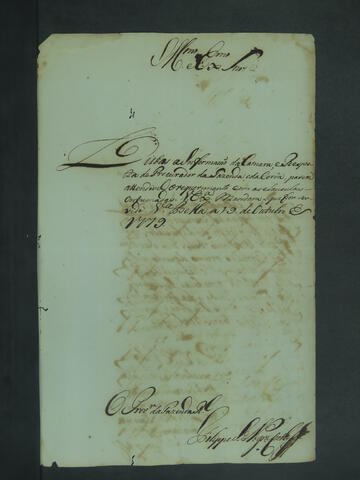 Illmo. Exmo. Snr.
Vista a Informação da Camara, e Respos
ta do Procurador da Fazenda, e da Coroa, parece
attendivel o requerimento com as clausulas
V Exa. Mandará o que for ser
vido Va. Bella a 19 de Outubro de
1779
O Provor. da Fazenda Rl.
Felippe